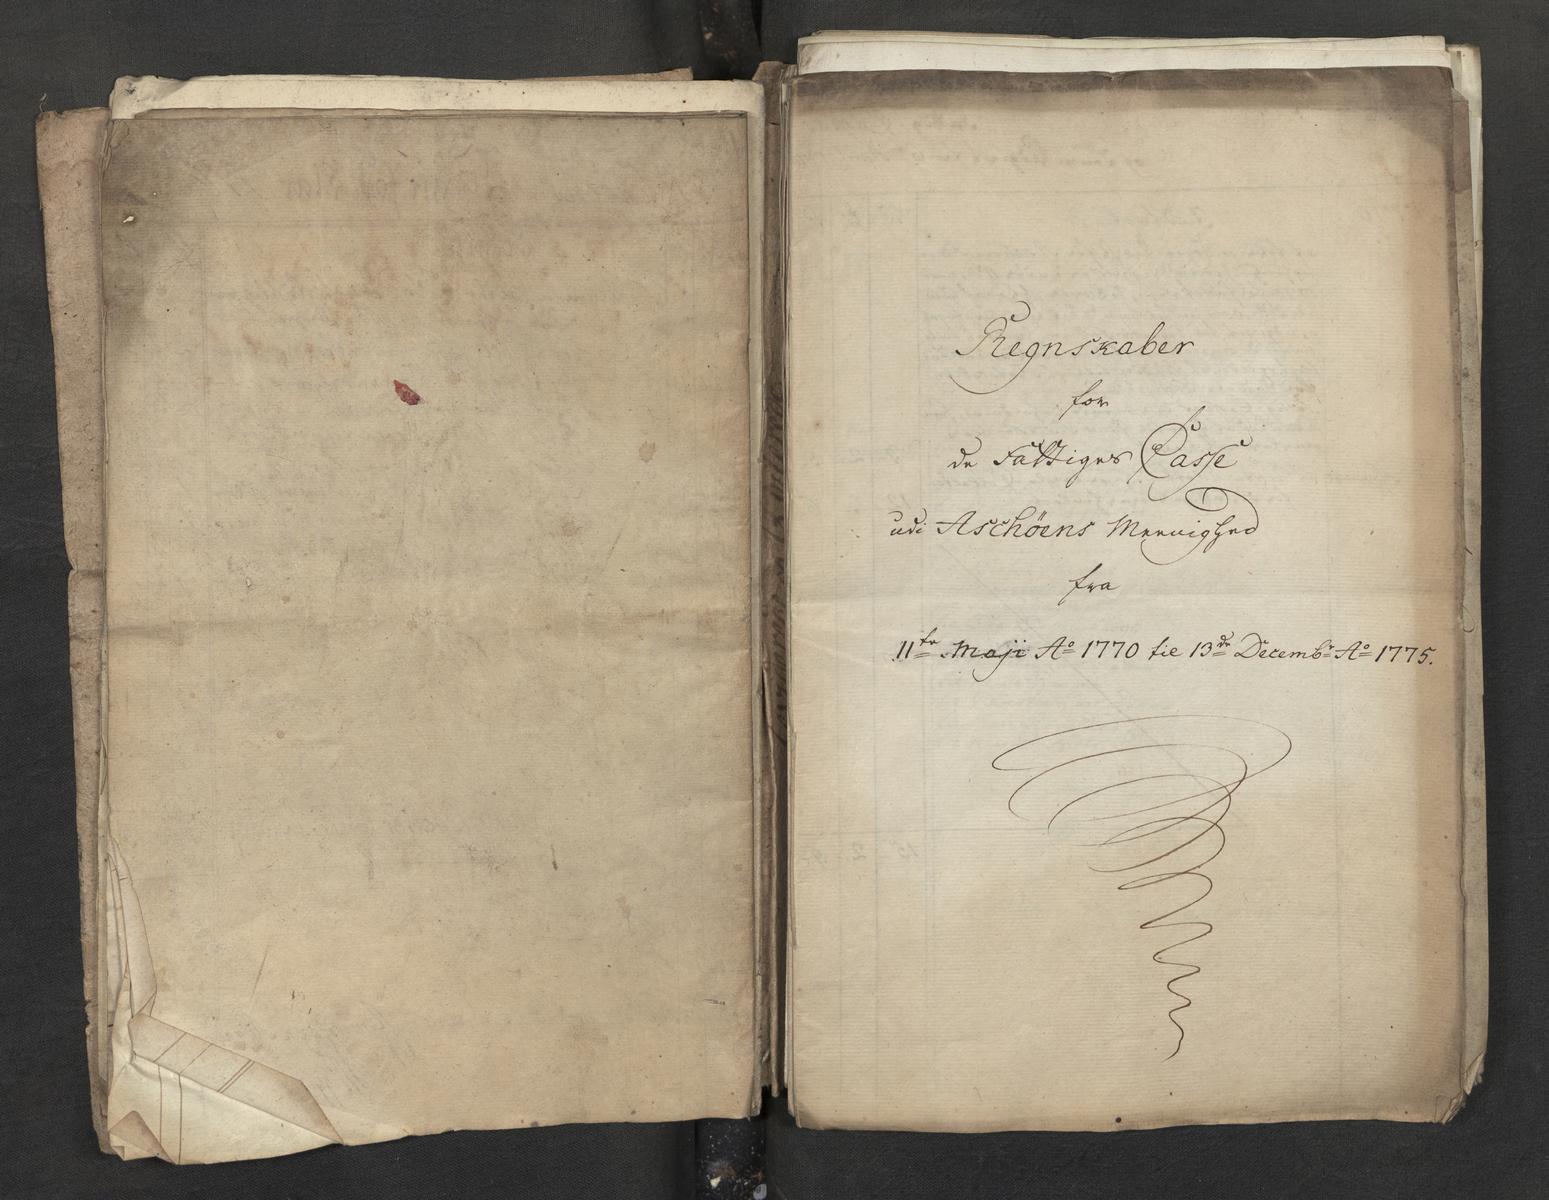 Regnskaber
for
de Fattiges Casse
udi Aschöens Menighed
fra
11te Maji Ao 1770 til 13de Decembr Ao 1775.